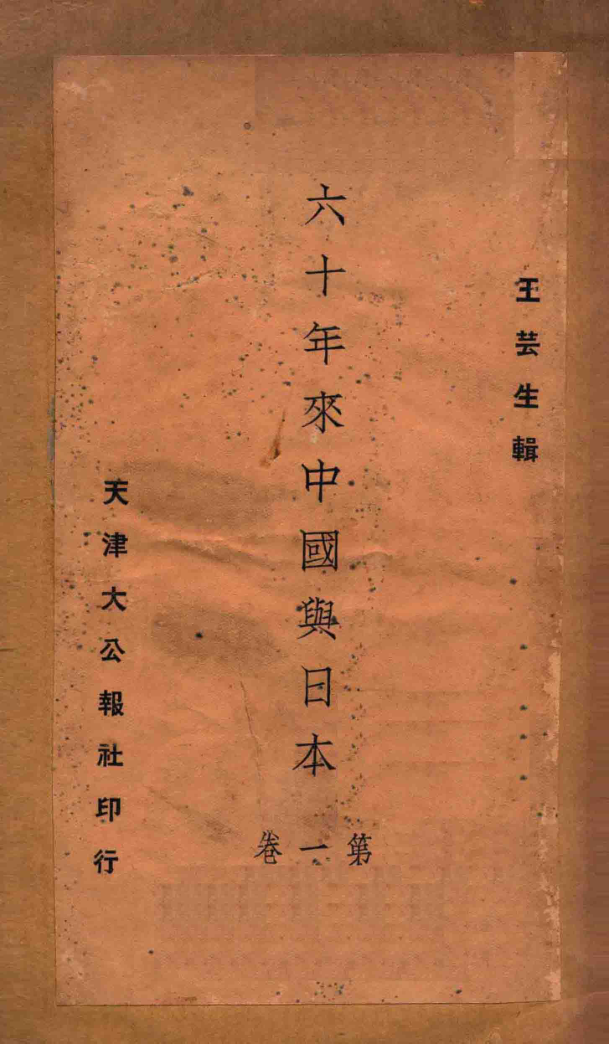 王芸生輯
六十年來中國與日本
第一卷
天津大公報社印行